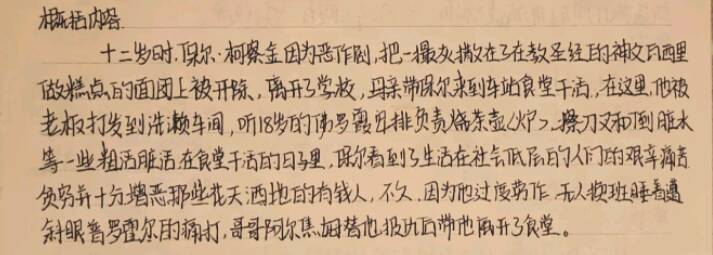 概括内容
十二岁时,保尔·柯察金因为恶作剧,把一撮灰撒在了在教圣经的神父瓦西里
做糕点的面团上被开除,离开了学校,母亲带保尔来到车站食堂干活,在这里,他被
老板打发到洗漱车间,听18岁的佛罗霞安排负责烧茶壶(炉)、擦刀叉和倒脏水
等一些粗活脏活,在食堂干活的日子里,保尔看到了生活在社会低层的人们的艰辛痛苦
贫穷并十分憎恶那些花天酒地的有钱人,不久,因为他过度劳作,无人换班睡着遭
斜眼普罗霍尔的痛打,哥哥阿尔焦姆替他报仇后带他离开了食堂。